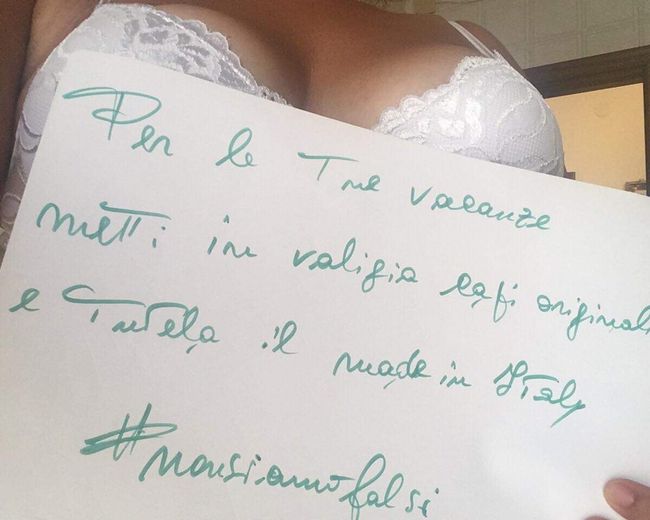 Per le Tue vacanze
metti in valigia capi original
e Tutela il made in Italy
#nonsiamofalsi